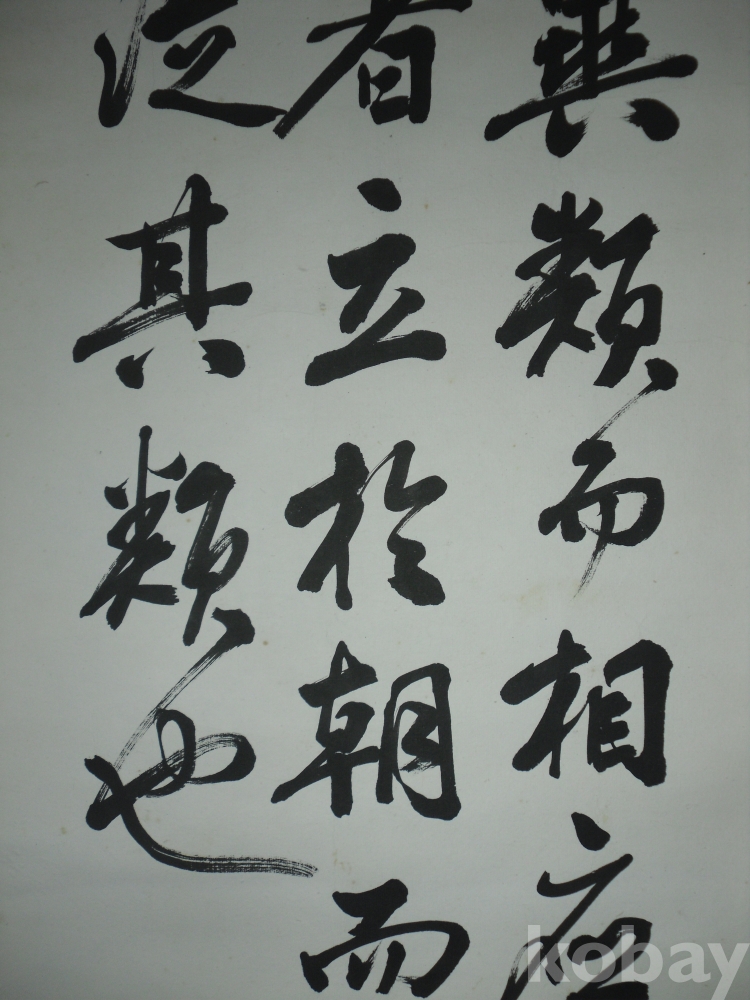 類而相應
者立於朝而
從其類也
kobay